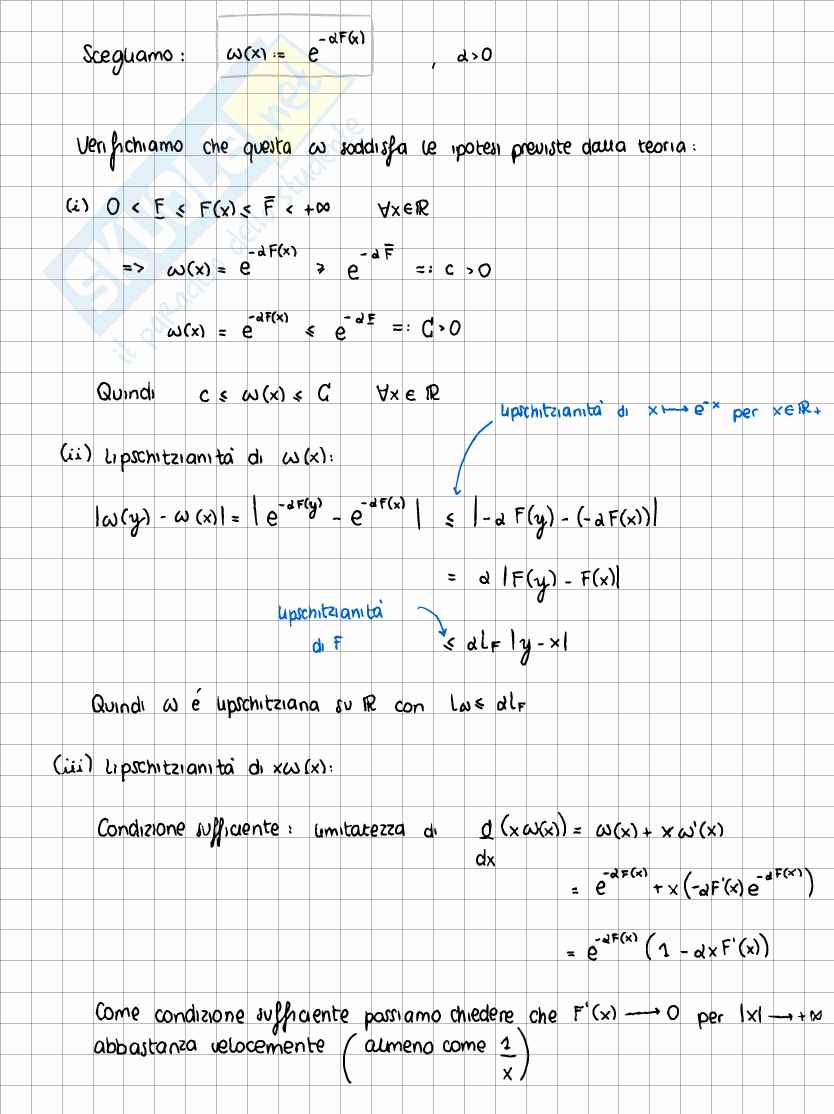 Scegliamo : ω(x) := e^{-αF(x)} , α>0
Verifichiamo che questa ω soddisfa le ipotesi previste dalla teoria :
(i) 0 < F̲ ≤ F(x) ≤ F̄ < +∞ ∀x∈ℝ
=> ω(x) = e^{-αF(x)} ≥ e^{-αF̄} =: c > 0
ω(x) = e^{-αF(x)} ≤ e^{-αF̲} =: C > 0
Quindi c ≤ ω(x) ≤ C ∀x ∈ ℝ
lipschitzianità di x ↦ e^{-x} per x∈ℝ+
(ii) Lipschitzianità di ω(x):
|ω(y) - ω(x)| = |e^{-αF(y)} - e^{-αF(x)}| ≤ |-αF(y) - (-αF(x))|
= α |F(y) - F(x)|
lipschitzianità
di F ≤ αL_F |y-x|
Quindi ω é lipschitziana su ℝ con L_ω ≤ αL_F
(iii) Lipschitzianità di xω(x):
Condizione sufficiente : limitatezza di d/dx (xω(x)) = ω(x) + xω'(x)
= e^{-αF(x)} + x(-αF'(x)e^{-αF(x)})
= e^{-αF(x)} (1 - αxF'(x))
Come condizione sufficiente possiamo chiedere che F'(x) → 0 per |x| → +∞
abbastanza velocemente (almeno come 1/x)
SKUOLA.net
il paradiso dello studente